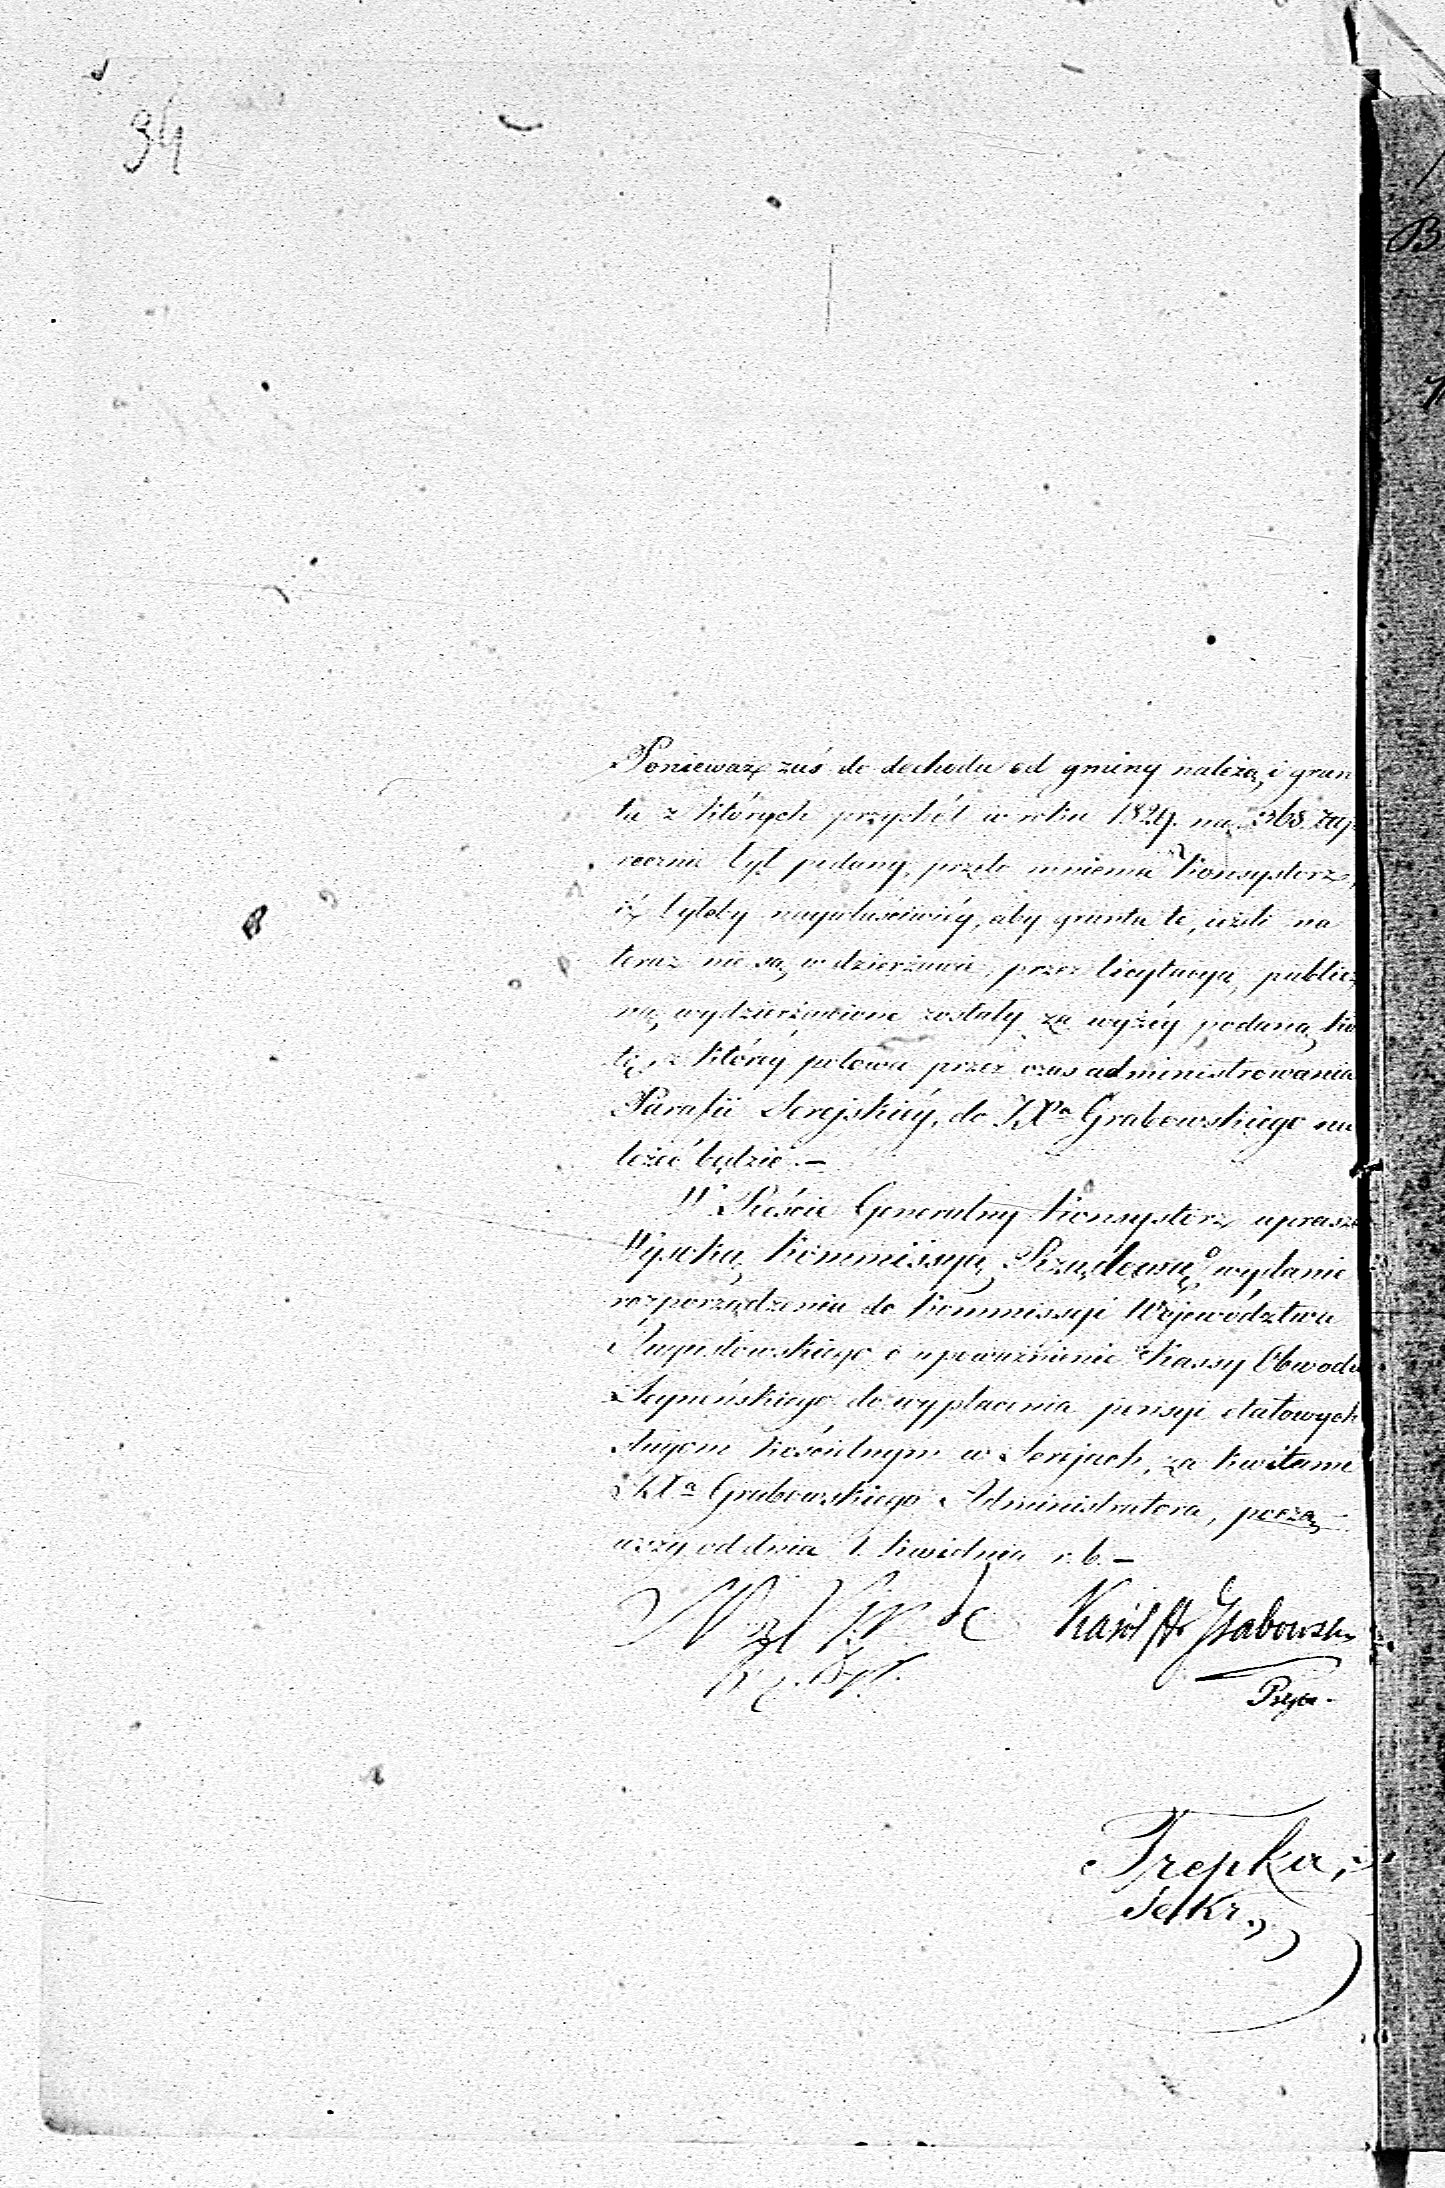 94
Ponieważ zaś do dochodu od gminy należą i grun
ta z których przychód w roku 1829. na 368. złp.
rocznie był podany, przeto mniema Konsystorz,
iż byłoby najwłaściwiéy, aby grunta te, ieżeli na
teraz nie są w dzierżawie, przez licytacyą publicz
ną wydzierżawione zostały za wyżéy podaną kwo
tę, z któréy połowa przez czas administrowania
Parafii Serejskiéy, do JXa Grabowskiego na
leżeć będzie. —
W Reście Generalny Konsystorz uprasza
Wysoką Kommissyą Rządową o wydanie
rozporządzenia do Kommissyi Województwa
Augustowskiego o upoważnienie Kassy Obwodu
Seyneńskiego do wypłacenia pensyi etatowych
sługom kościelnym w Serejach, za kwitami
JXa Grabowskiego Administratora, począ
wszy od dnia 1. Kwietnia r. b. —
Karól Grabowski
Trepka,
Sekr.